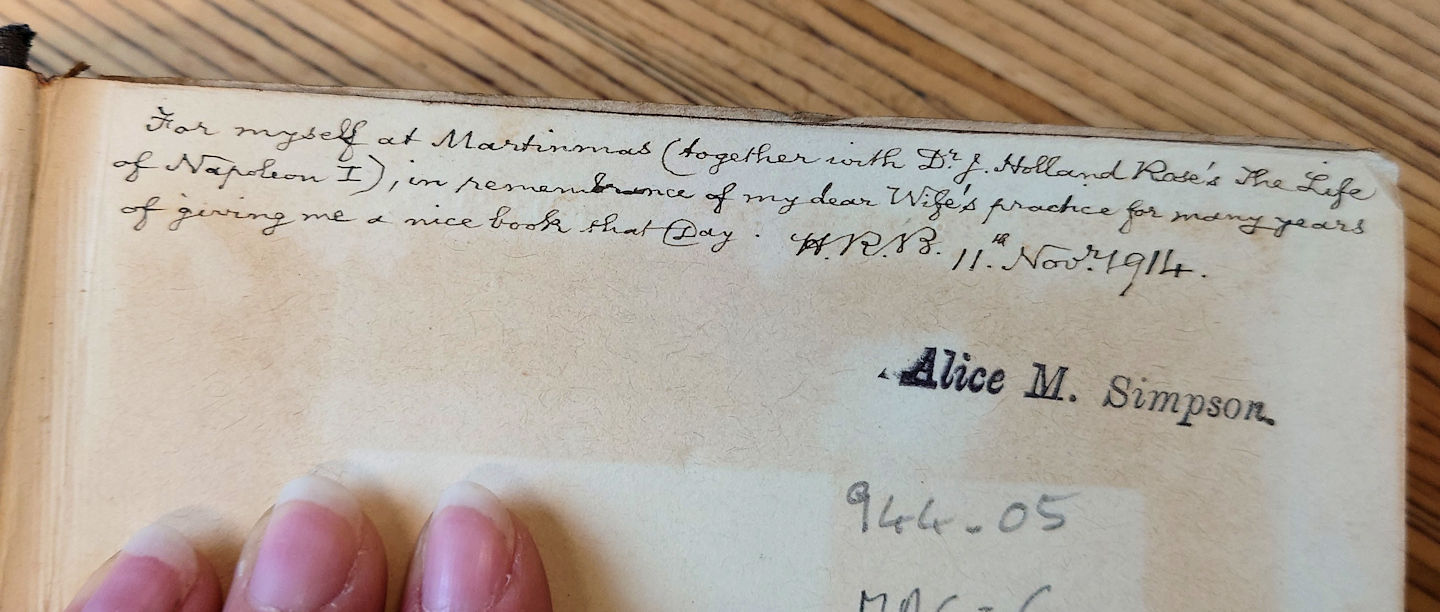 For myself at Martinmas (together with Dr. J. Holland Rose's The Life
of Napoleon I), in remembrance of my dear Wife's practice for many years
of giving me a nice book that Day. H.R.B. 11th. Novr. 1914.
Alice M. Simpson.
944.05